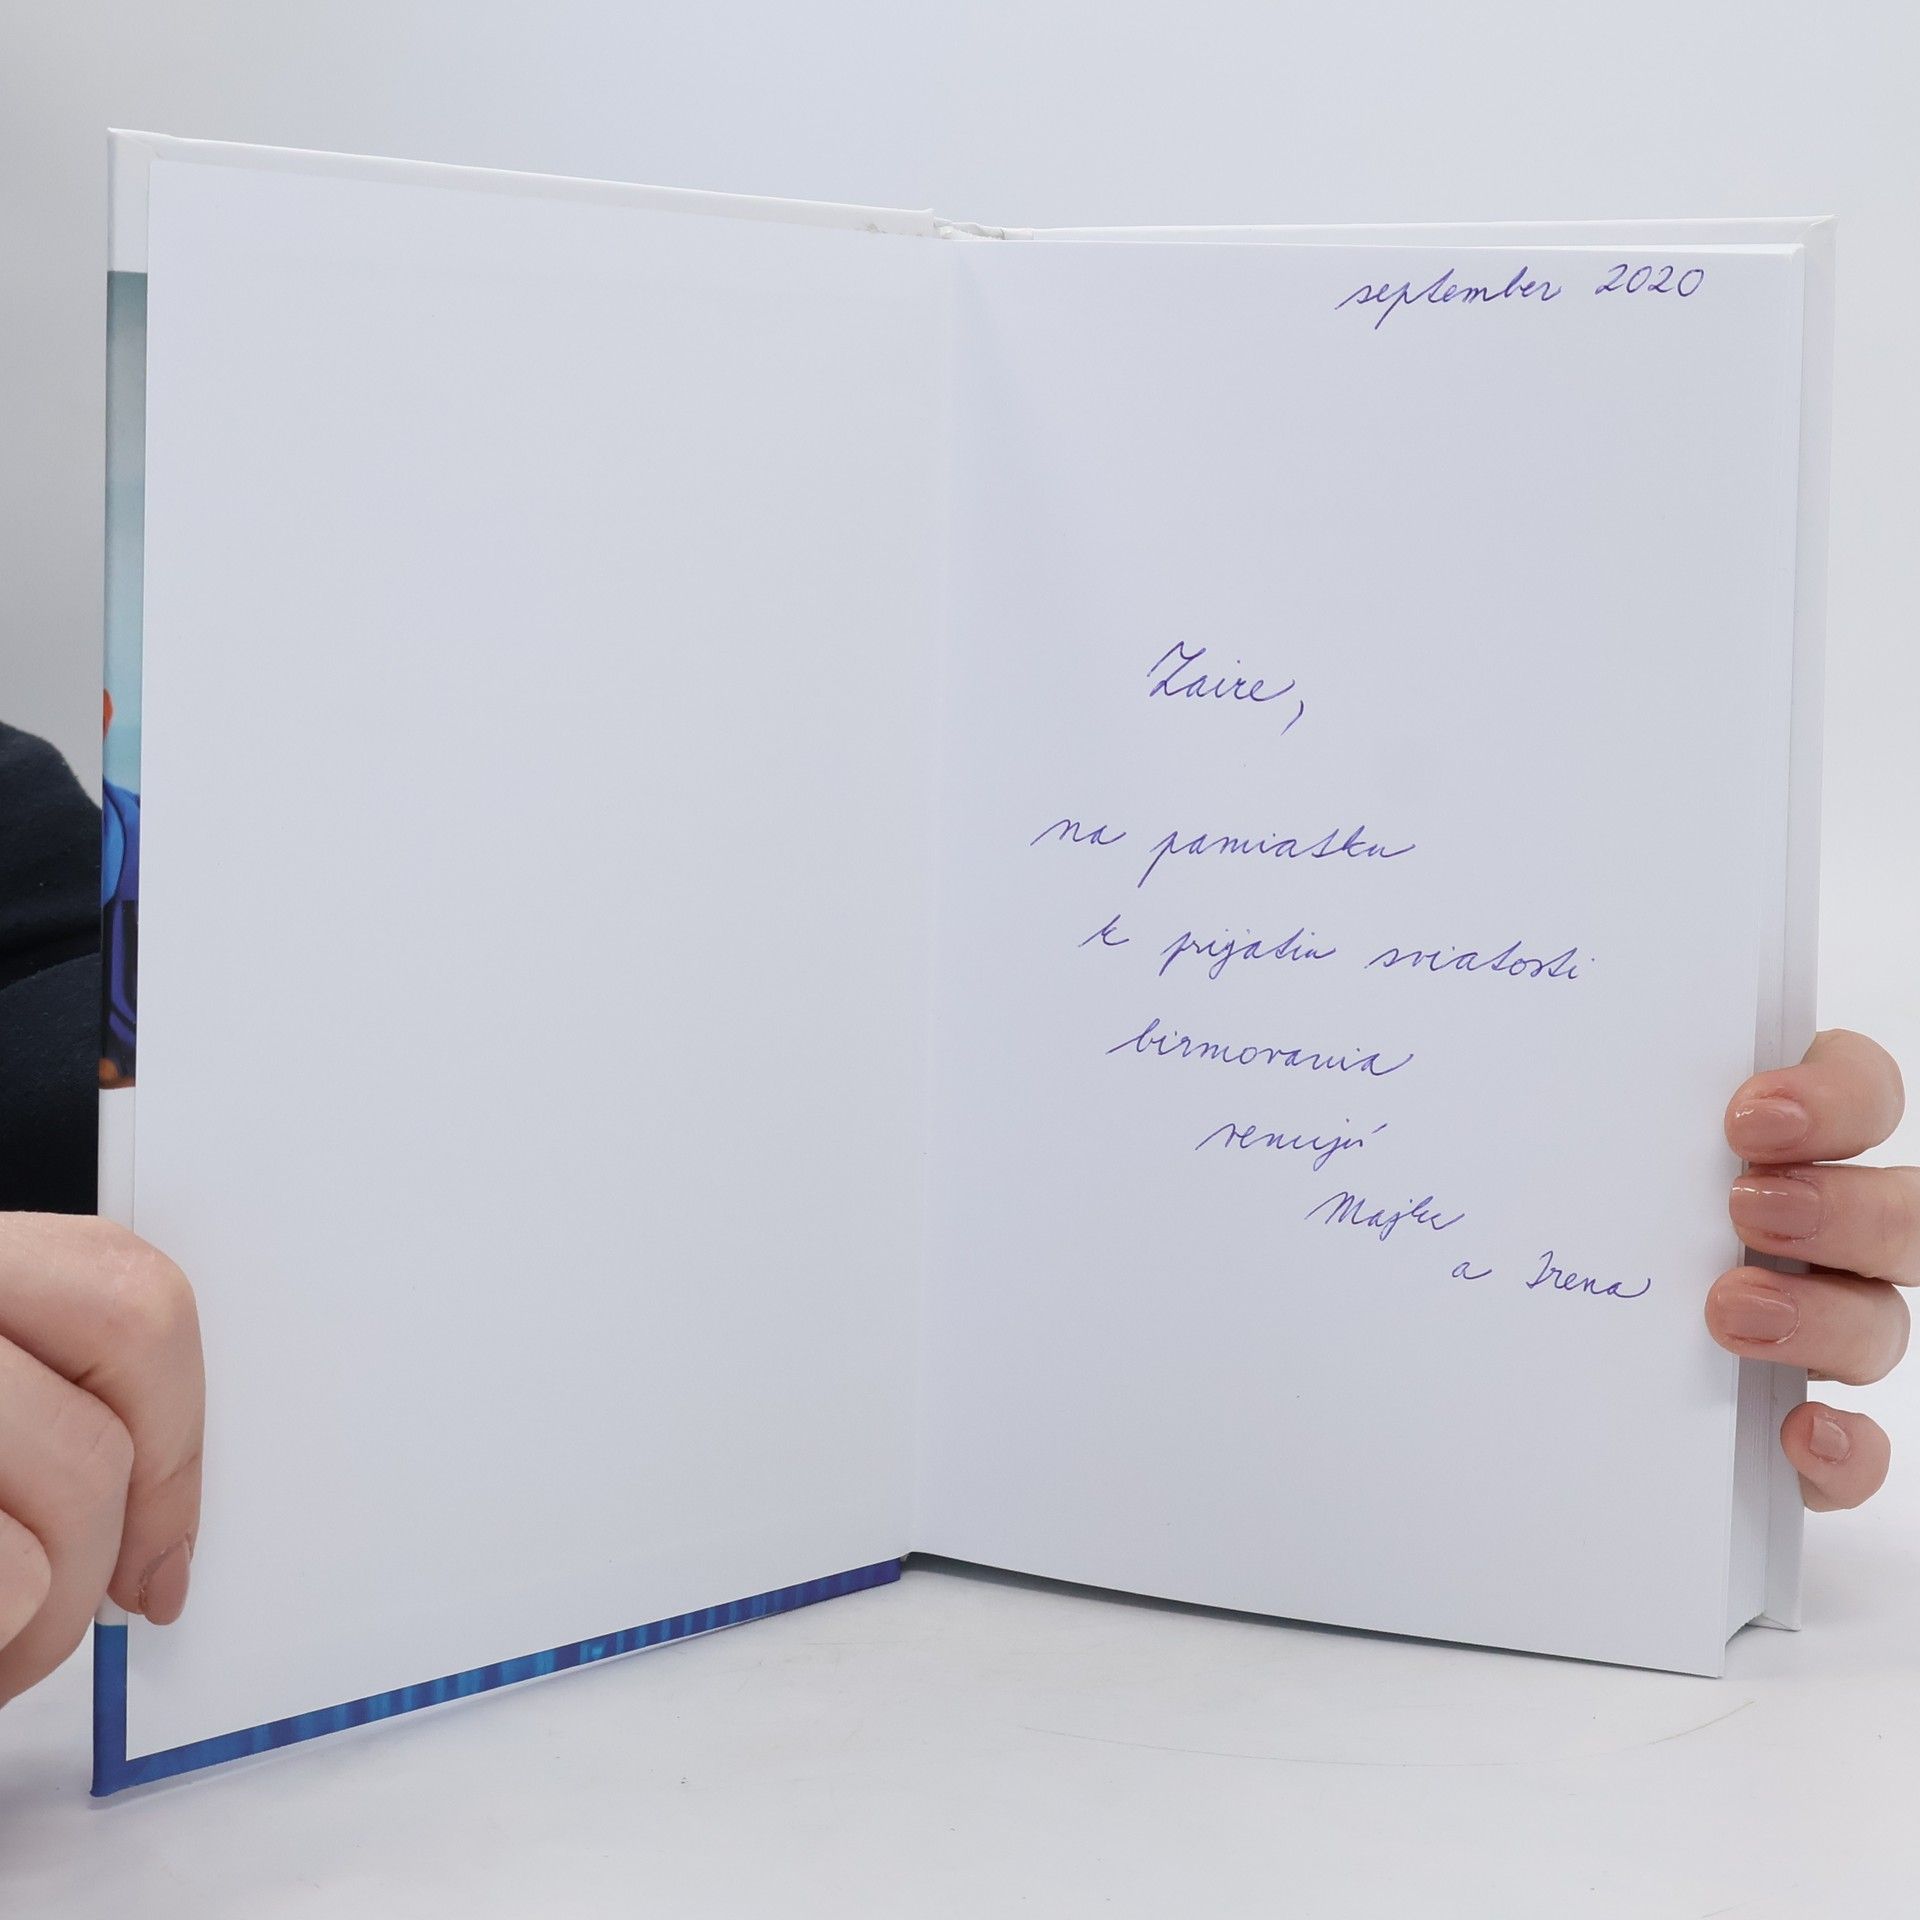 september 2020
Zaire,
na pamiatku
k prijatiu sviatosti
birmovania
venujú
Majka
a Irena